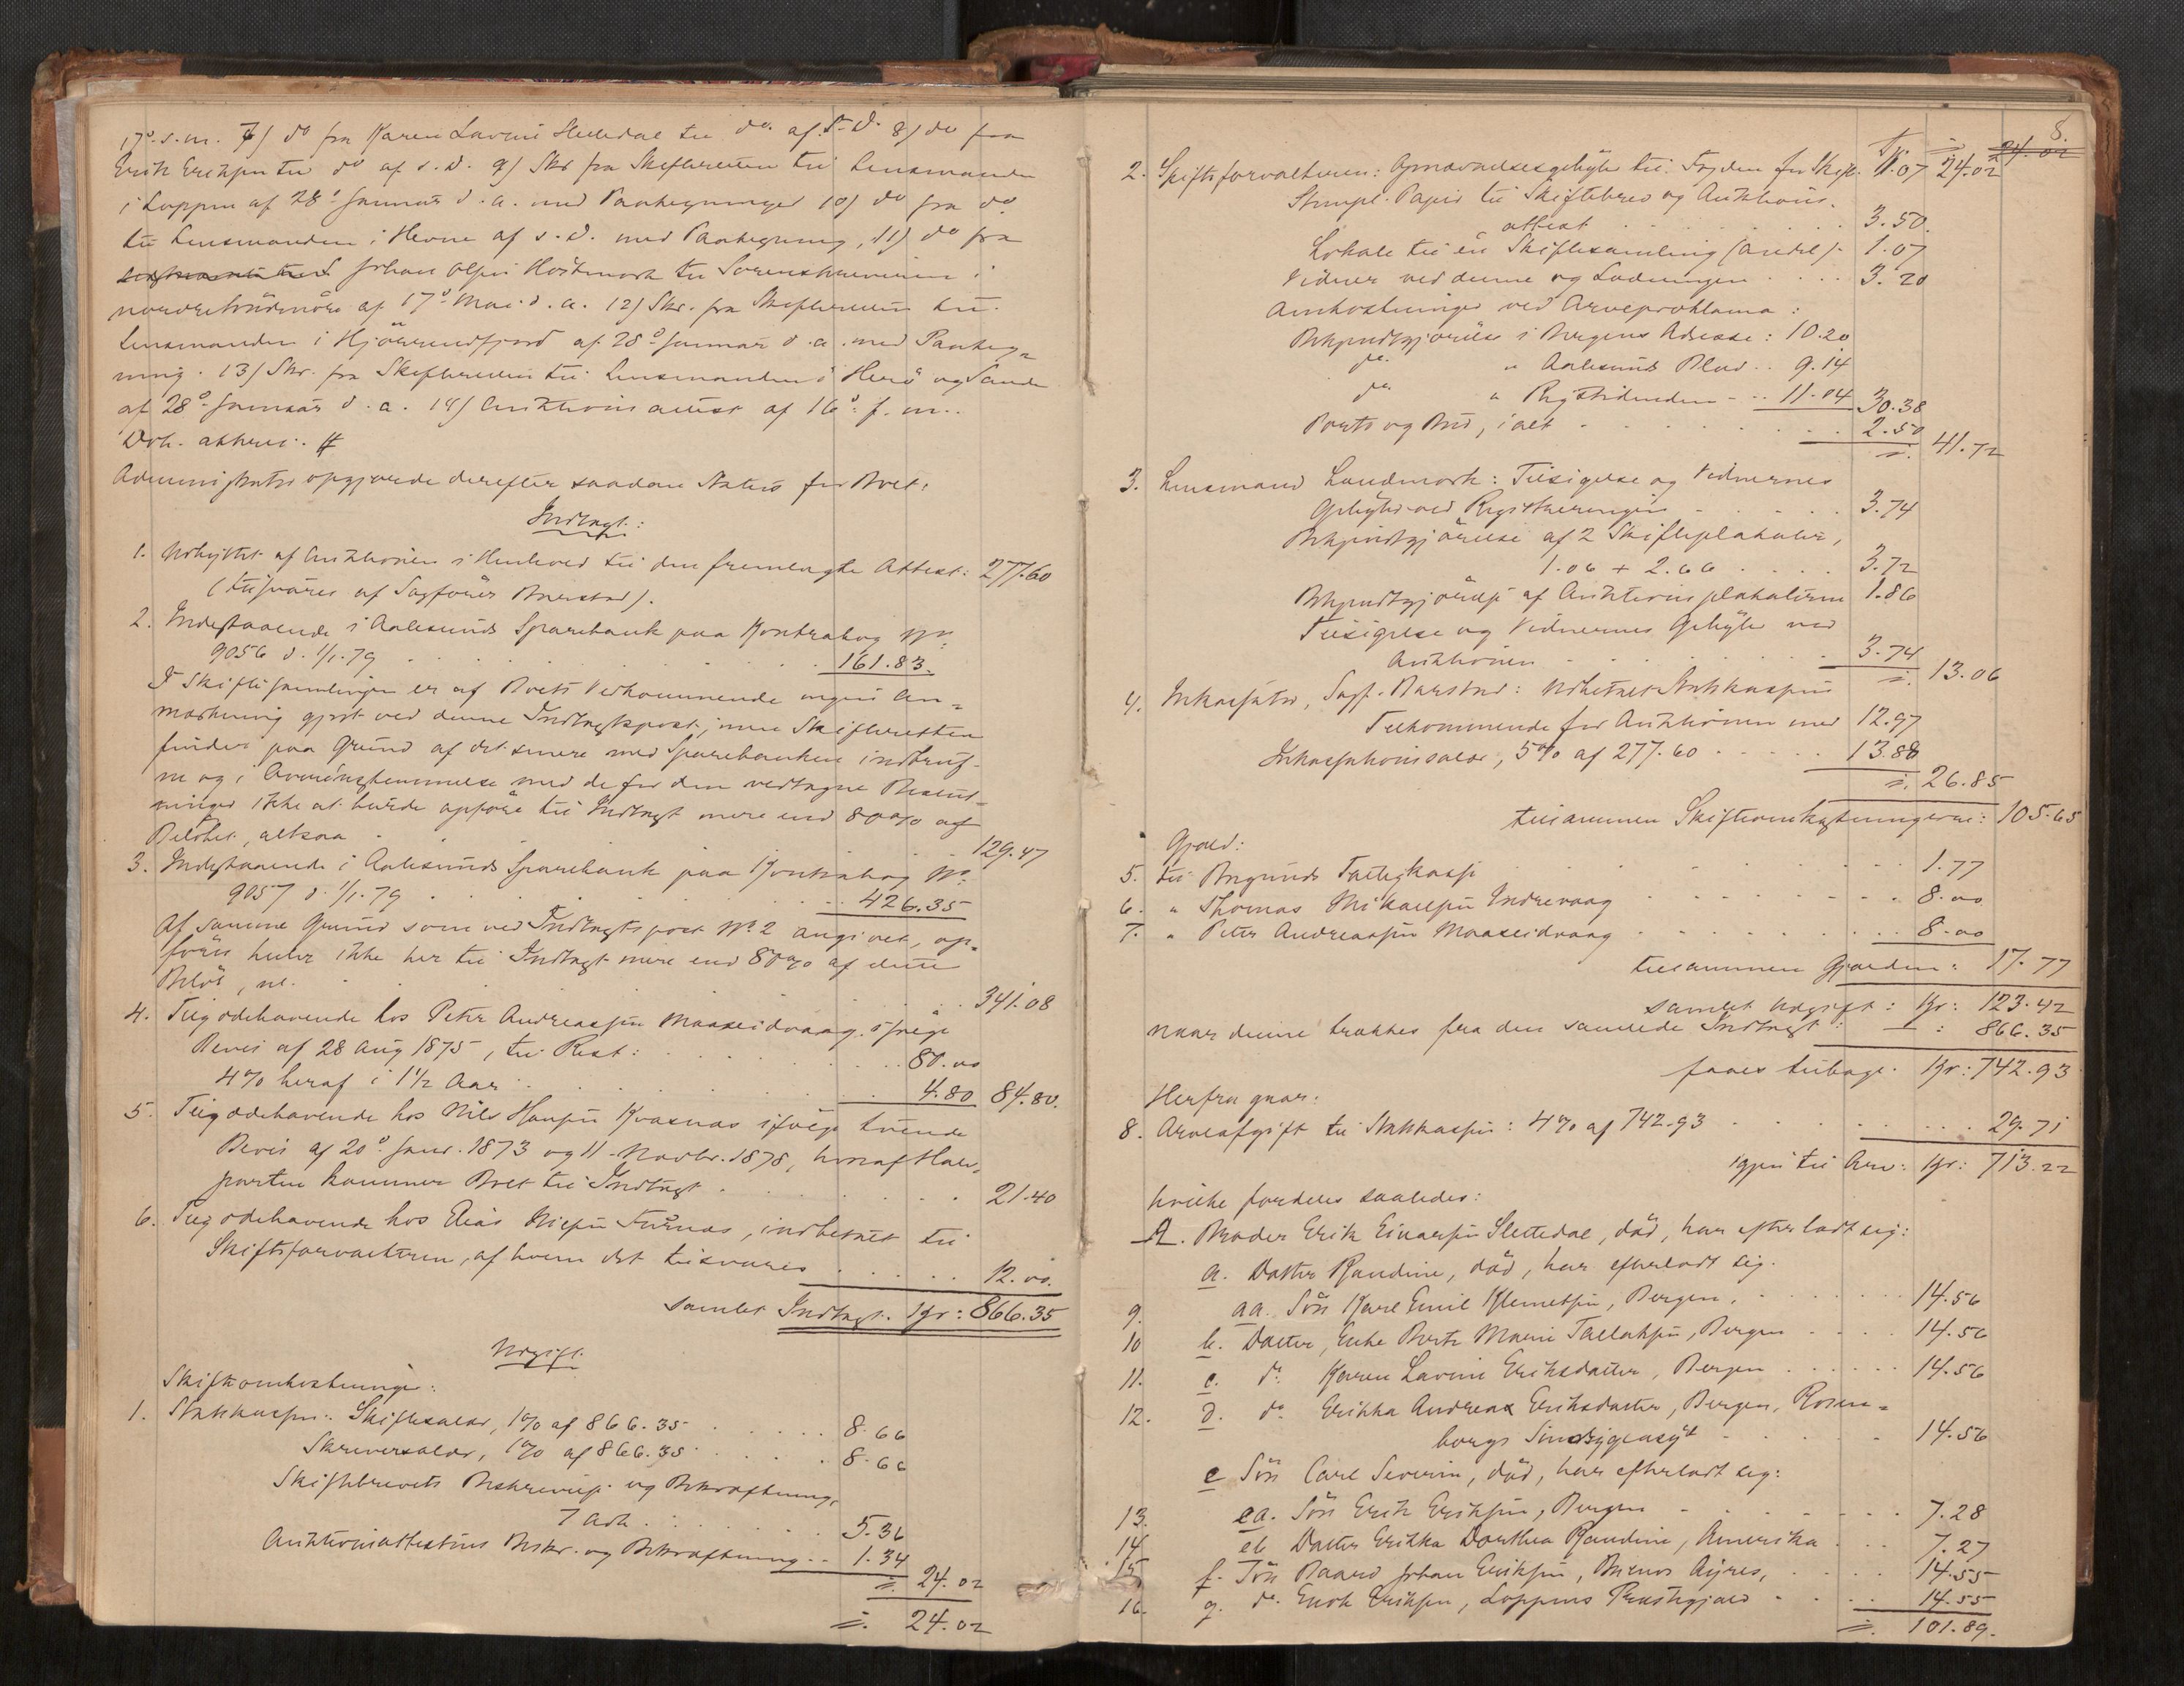 17de s. m. 7) do fra Karen Lavine Slettedal til do. af s. D. 8) do fra
Erik Eriksen til do af s. d. 9) Skr fra Skifteretten til Lensmanden
i Loppen af 28de Januar d. a. med Paategninger 10) do fra do.
til Lensmanden i Hevne af s. d. med Paategning, 11) do fra
Johan Olsen Hostmark til Sorenskriveren i
nordre Söndmöre af 17de Mai d. a. 12) Skr. fra Skifteretten til
Lensmanden i Hjörundfjord af 28de Januar d. a. med Paateg=
ning. 13) Skr. fra Skifteretten til Lensmanden i Herö og Sande
af 28de Januar d. a. 14) Auktionsattest af 16de f. m..
Dok. akter..
Administrator opgjorde derefter saadan Status for Boet:
Indtægt:
1. Udbyttet af Auktionen i Henhold til den fremlagte Attest: 277.60
(tilsvares af Sagförer Barstad).
2. Indestaaende i Aalesunds Sparebank paa Kontrabog No
9056 d. 1/1. 79 . . . 161.83.
I Skiftesamlingen er af Boets Vedkommende ingen An=
mærkning gjort ved denne Indtægtspost, men Skifteretten
finder paa Grund af det senere med Sparebanken indtruf-
ne og i Overensstemmelse med de for den vedtagne Bestem-
melser ikke at burde opföre til Indtægt mere end 80% af
Belöbet, altsaa . 129.47
3. Indestaaende i Aalesunds Sparebank paa Kontrabog No.
9057 d. 1/1. 79 . . . 426.35
Af samme Grund som ved Indtægtspost No. 2 angivet, op=
föres heller ikke her til Indtægt mere end 80% af dette
Belöb, nl. . . . 341.08
4. Tilgodehavende hos Peter Andreassen Maaseidvaag ifölge
Bevis af 28 Aug 1875, til Rest: . . . 80.00
4% heraf i 1½ Aar . . . 4.80 84.80.
5. Tilgodehavende hos Nils Hansen Kvasnæs ifölge tvende
Bevis af 20de Janr. 1873 og 11 Novbr. 1878, hvoraf Halv=
parten kommer Boet til Indtægt . . . 21.40
6. Tilgodehavende hos Elias Nilsen Furnæs, indbetalt til
Skifteforvalteren, af hvem det tilsvares . . . 12.00.
samlet Indtægt. Kr: 866.35
Udgift.
Skifteomkostninger:
1. Statskassen: Skiftesalær, 1% af 866.35 . . . 8.66
Skriversalær, 1% af 866.35 . . . 8.66
Skiftebrevets Beskrivelse og Bekræftning,
7 Ark . . . 5.36
Auktionsattestens Beskr. og Bekræftning . . 1.34
=. 24.02
=. 24.02
8.
24.02
Tr. = 24.02
2. Skifteforvalteren: Opnævnelsesgebyhr til Fogden for Skift. 1.07
Stempl. Papir til Skiftebrev og Auktions-
attest . . . 3.50.
Lokale til en Skiftesamling (Andel) . 1.07
Vidner ved denne og Lodningen . . . 3.20
Omkostninger ved Arveproklama:
Bekjendtgjörelse i Bergens Adresse: 10.20
do. " Aalesunds Blad . . 9.14
do " Rigstidenden - . . 11.04 30.38
Porto og Bud, i alt . . . 2.50
=. 41.72
3. Lensmand Landmark: Tilsigelse og Vidnernes
Gebyhr ved Registreringen . . . 3.74
Bekjendtgjörelse af 2 Skifteplakater,
1.06 + 2.66 . . . 3.72
Bekjendtgjörelse af Auktionsplakaterne 1.86
Tilsigelse og Vidnernes Gebyhr ved
Auktionen . . . 3.74
=. 13.06
4. Inkassator, Sagf. Barstad: Udbetalt Statskassen
Tilkommende for Auktionen med 12.97
Inkassationssalær, 5% af 277.60 . . . 13.88
=. 26.85
tilsammen Skifteomkostningerne: 105.65
Gjæld:
5. til Borgunds Fattigkasse . . . 1.77
6. " Thomas Mikaelsen Indrevaag . . . 8.00
7. " Peter Andreassen Maaseidvaag . . . 8.00
tilsammen Gjælden: 17.77
samlet Udgift: Kr: 123.42
naar denne trækkes fra den samlede Indtægt: — : 866.35
faaes tilbage. Kr: 742.93
Herfra gaar:
8. Arveafgift til Statskassen: 4% af 742.93 . . . 29.71
igjen til Arv: Kr: 713.22
hvilke fordeles saaledes:
A. Broder Erik Einarsen Slettedal, död, har efterladt sig:
a. Datter Randine, död, har efterladt sig.
9. aa. Sön Karl Emil Klemetsen, Bergen, . . . 14.56
10 b. Datter, Enke Berte Marie Tallaksen, Bergen . . . 14.56
11. c. do. Karen Lavine Eriksdatter, Bergen . . . 14.56
12. d. do. Erikka Andrea Eriksdatter, Bergen, Rosen=
bergs Sindsygeasyl . . . 14.56
e Sön Carl Severin, död, har efterladt sig:
13. ea. Sön Erik Eriksen, Bergen . . . 7.28
14. eb Datter Erikka Dorthea Randine, Amerika . . . 7.27
15 f. Sön Baard Johan Eriksen, Buenos Ayres, . . . 14.55
16. g. do. Enok Eriksen, Loppens Præstegjæld . . . 14.55
=. 101.89.